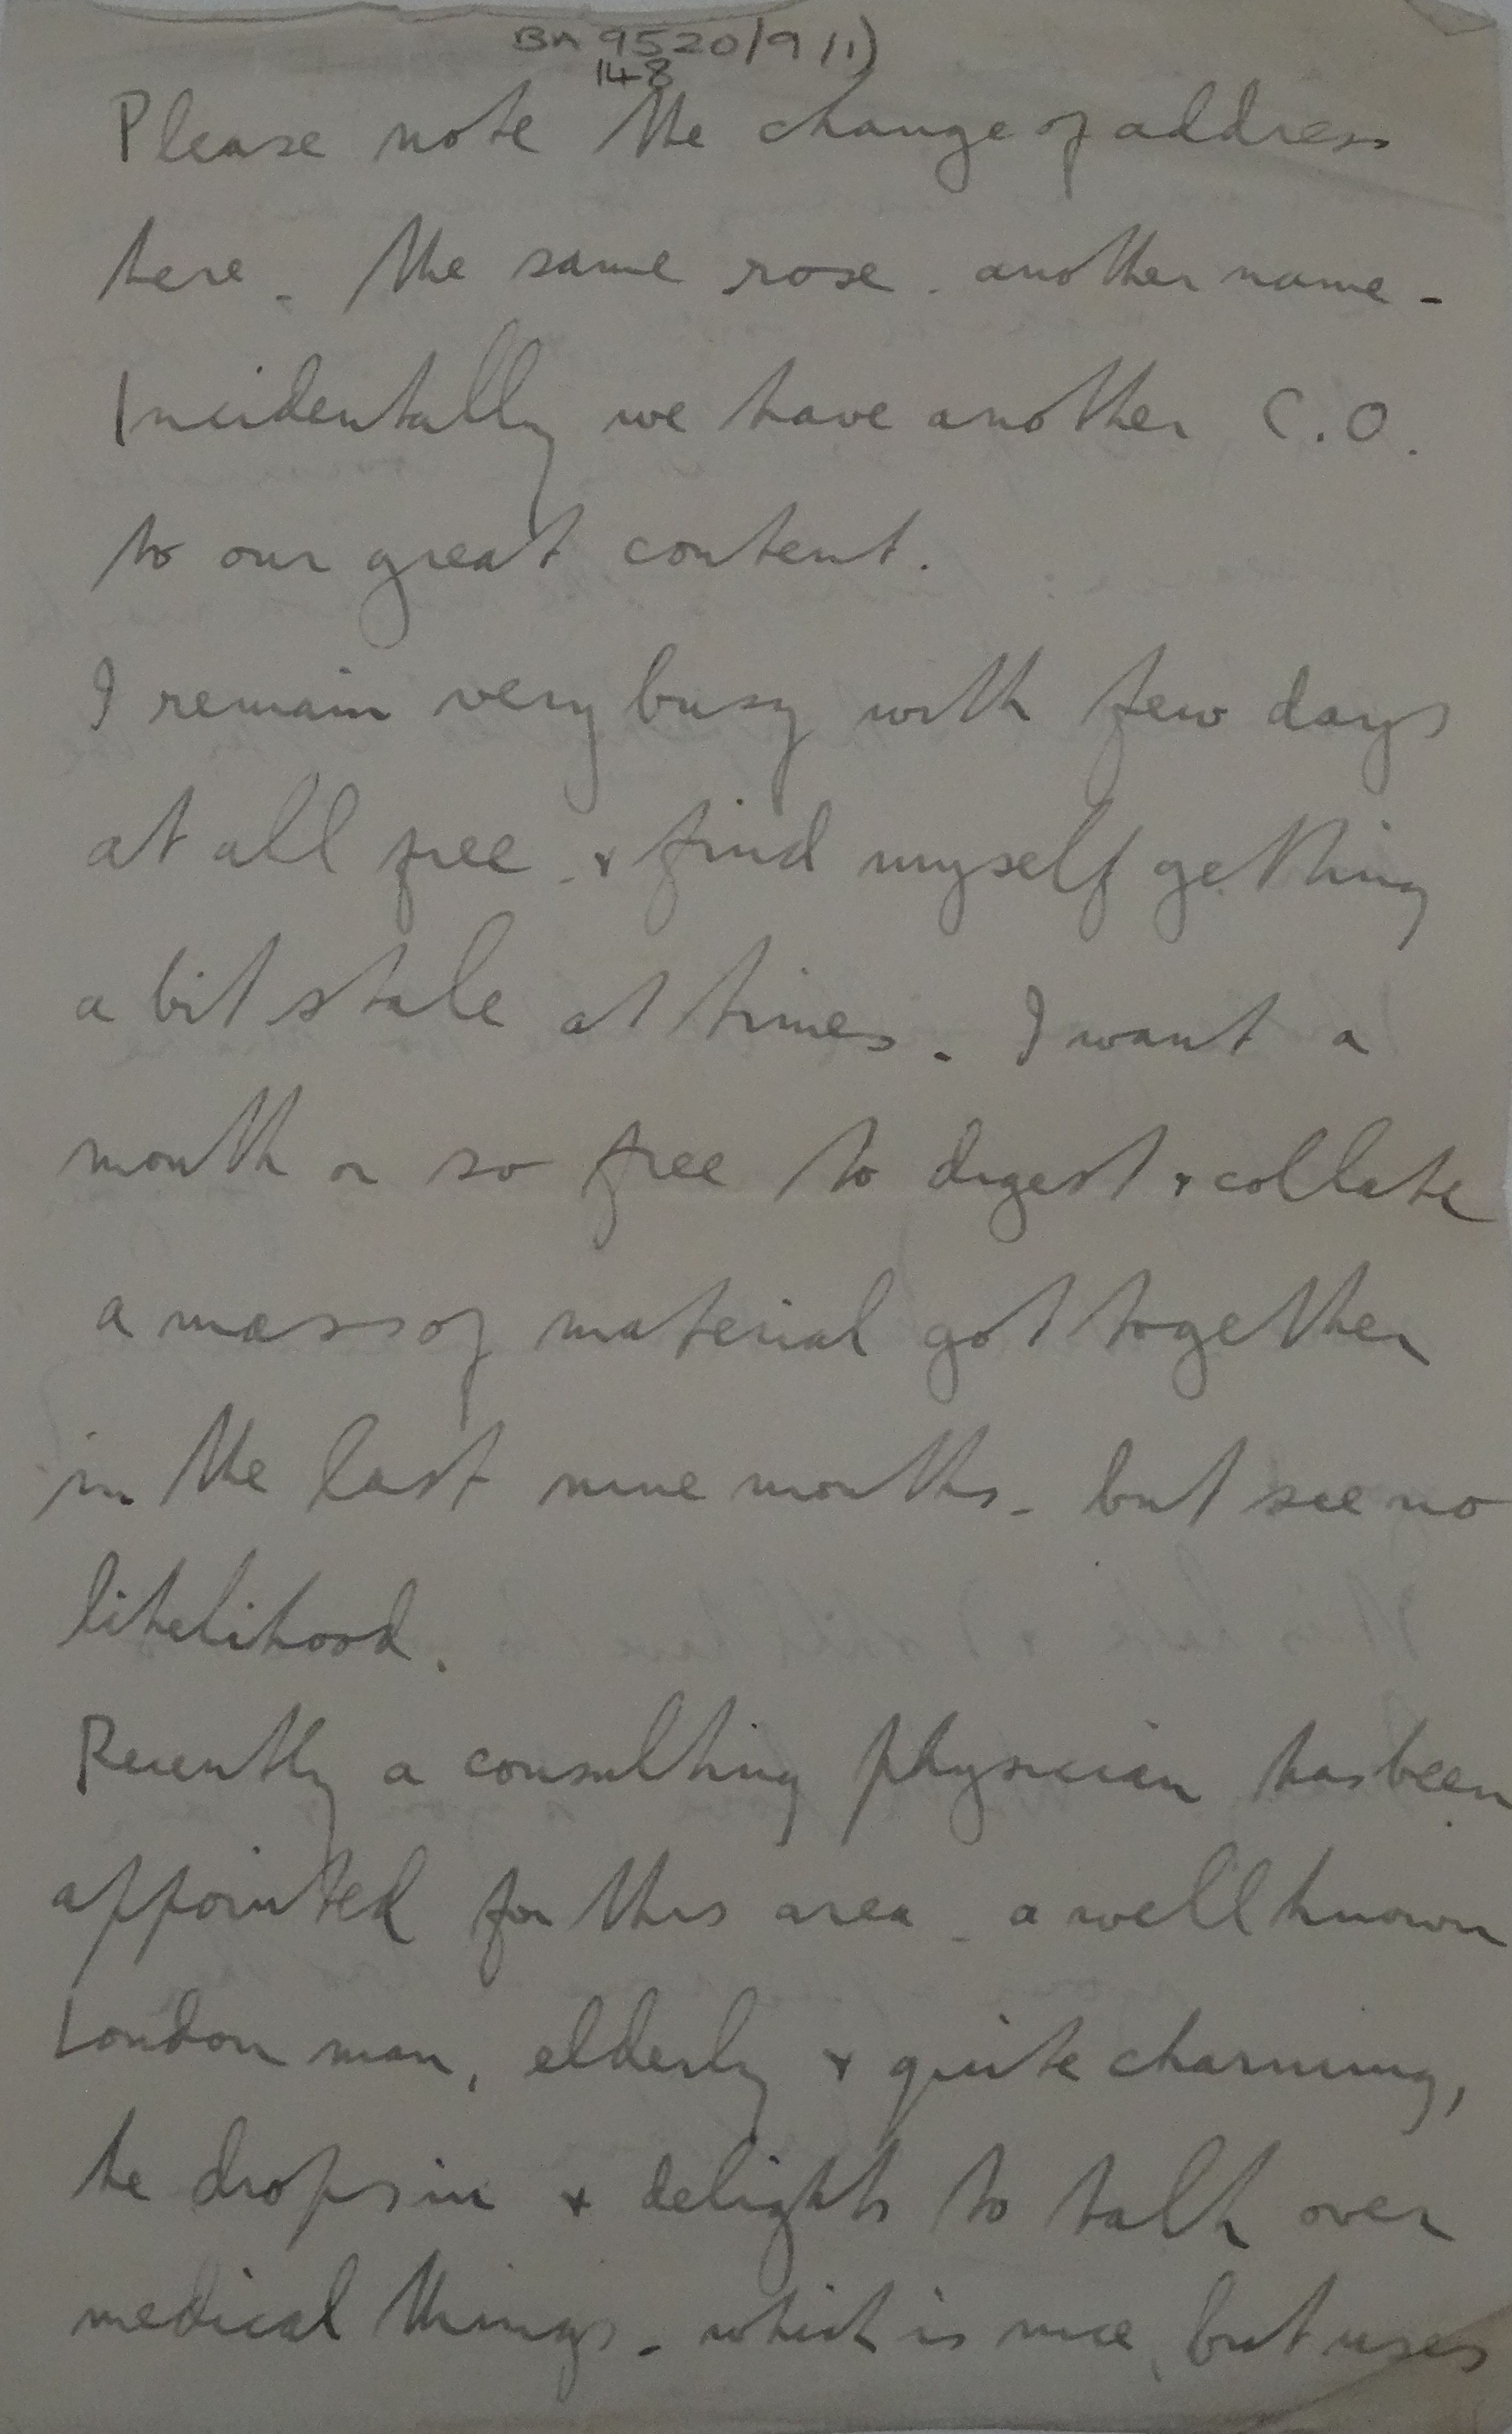 BA 9520/9/1)
148
Please note the change of address
here. The same rose. another name -
Incidentally we have another C.O.
to our great content.
I remain very busy with few days
at all free - & find myself getting
a bit stale at times. I want a
month or so free to digest & collate
a mass of material got together
in the last nine months - but see no
likelihood.
Recently a consulting physician has been
appointed for this area - a well known
London man, elderly & quite charming,
he drops in & delights to talk over
medical things - which is nice, but uses